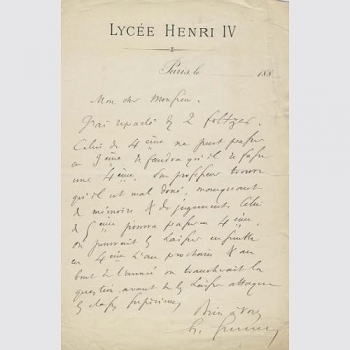 LYCÉE HENRI IV
Paris, le 188
Mon cher Monsieur,
J'ai reparlé des 2
Celui de 4ème ne peut passer
en 3ème il faudra qu'il refasse
une 4ème. Son professeur trouve
qu'il est mal doué, manquant
de mémoire & de jugement. Celui
de 5ème pourra passer en 4ème.
On pourrait les laisser ensemble
en 4ème l'an prochain & au
bout de l'année on trancherait la
question, avant de les laisser attaquer
les classes supérieures
Bien à vous